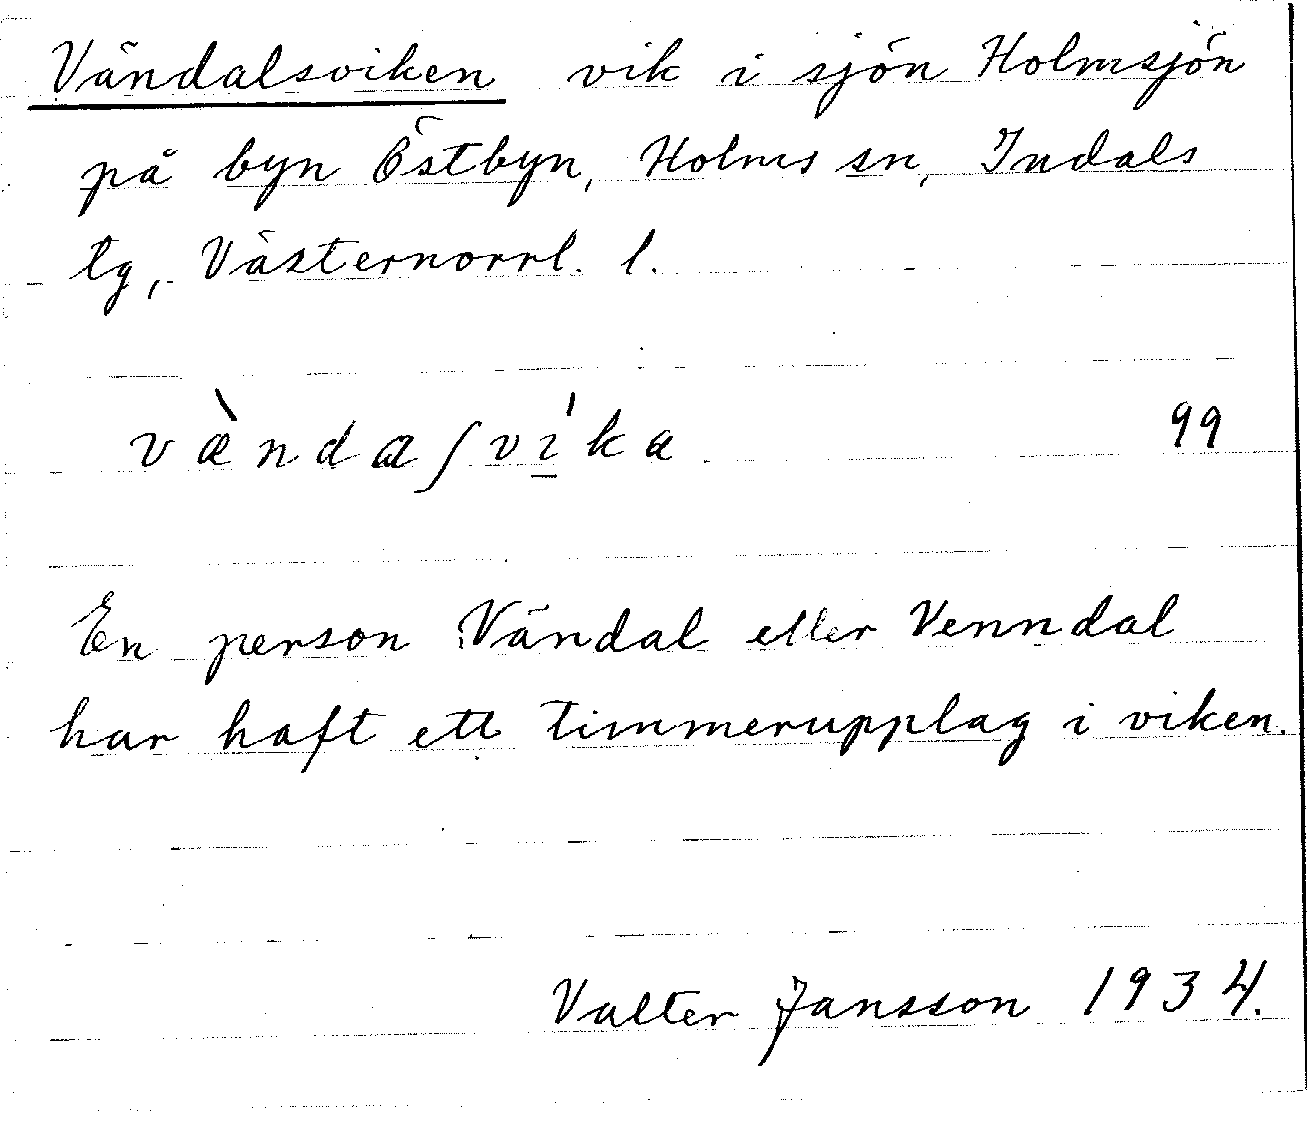 Vändalsviken vik i sjön Holmsjön
på byn Östbyn, Holms sn, Indals
tg, Västernorrl. l.
vændaʃvi̲ka 99
En person Vändal eller Venndal
har haft ett timmerupplag i viken.
Valter Jansson 1934.